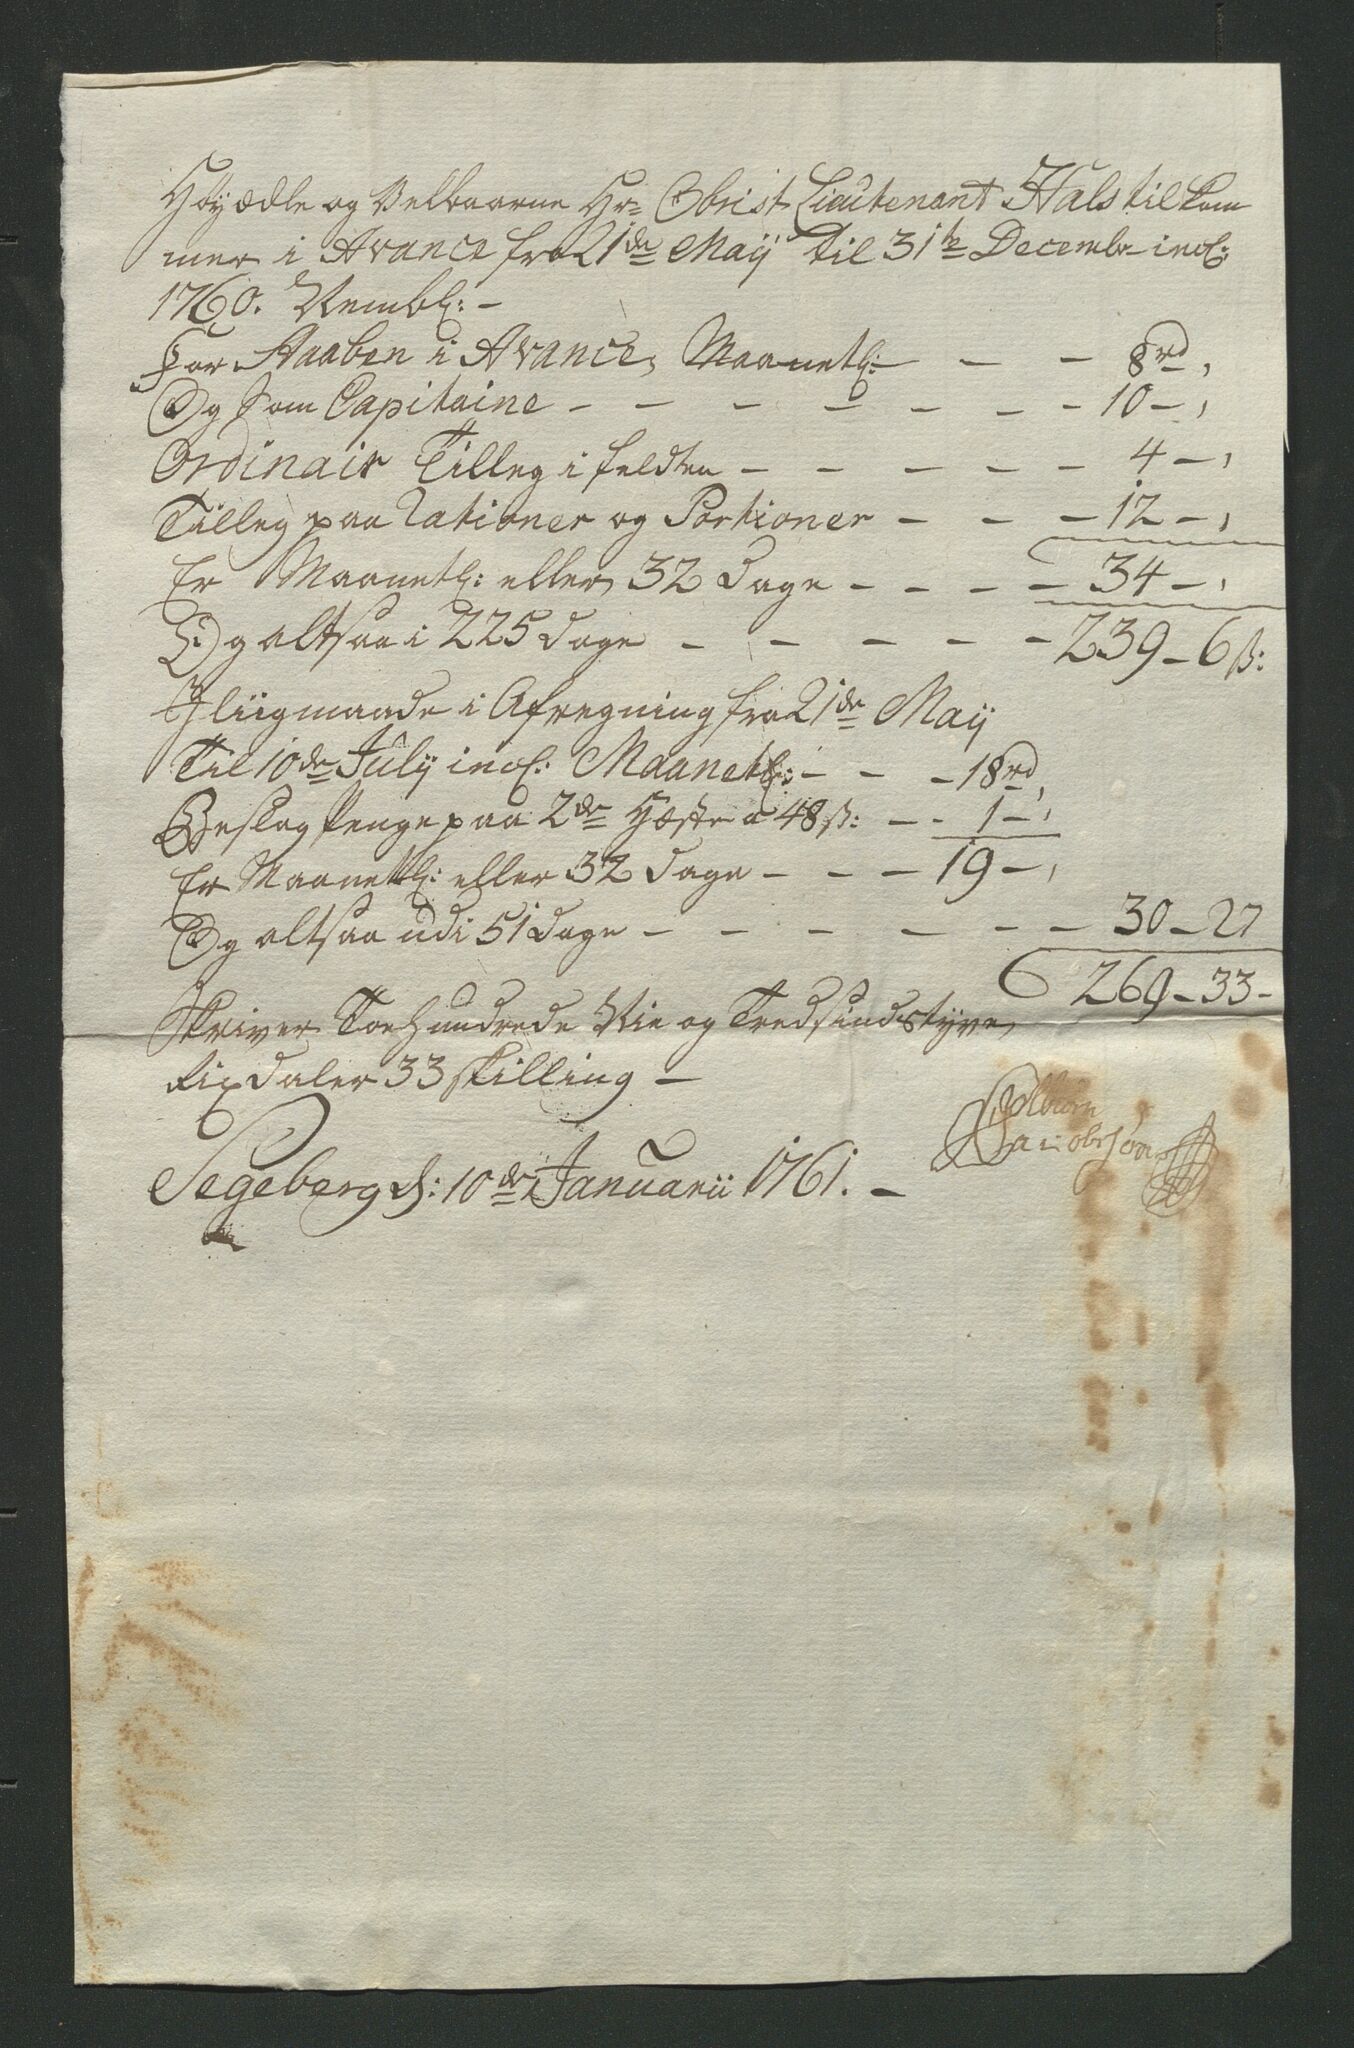 Höyædle og Velbaarne Hr= Obrist Lieutenant Hals tilkom
mer i Avance fra 21de Maÿ til 31te Decembr incl:
1760. Nembl: -
For Staaben i Avance, Maanetl: - - 8rd,
Og som Capitaine - - - - - - - 10 -,
Ordinair Tilleg i feldten - - - - - 4 -,
Tilleg paa Rationer og Portioner - - - 12 -,
Er Maanetl: eller 32 Dage - - - - 34 -,
Og altsaa i 225 Dage - - - - - 239 - 6 ß:
I liigmaade i Afregning fra 21de Maÿ
Til 10de Julÿ incl: Maanetl: - - - 18rd,
Beslag Penge paa 2de Hæste a 48 ß: - - 1 -,
Er Maanetl: eller 32 Dage - - - 19 -,
Og altsaa udi 51 Dage - - - - - - 30 - 27
269 - 33 -
Skriver Toehundrede Nie og Tredsindstÿve
Rixdaler 33 skilling -
Segeberg d: 10de Januarii 1761. -
Jacobsøn